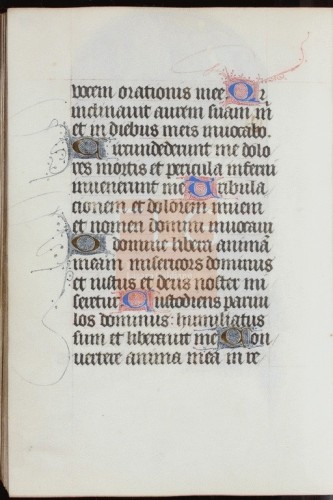 vocem orationis mee Qr
inclinauit aurem suam m
et in diebus meis inuocabo.
Circumdederunt me dolo
res mortis et pericula inferni
inuenerunt me Tribula
cionem et dolorem inueni
et nomen domini inuocaui
O domine libera animā
meam misericors dominus
et iustus et deus noster mi
seretur Custodiens paruu
los dominus humiliatus
sum et liberauit me Con
uertere anima mea in re